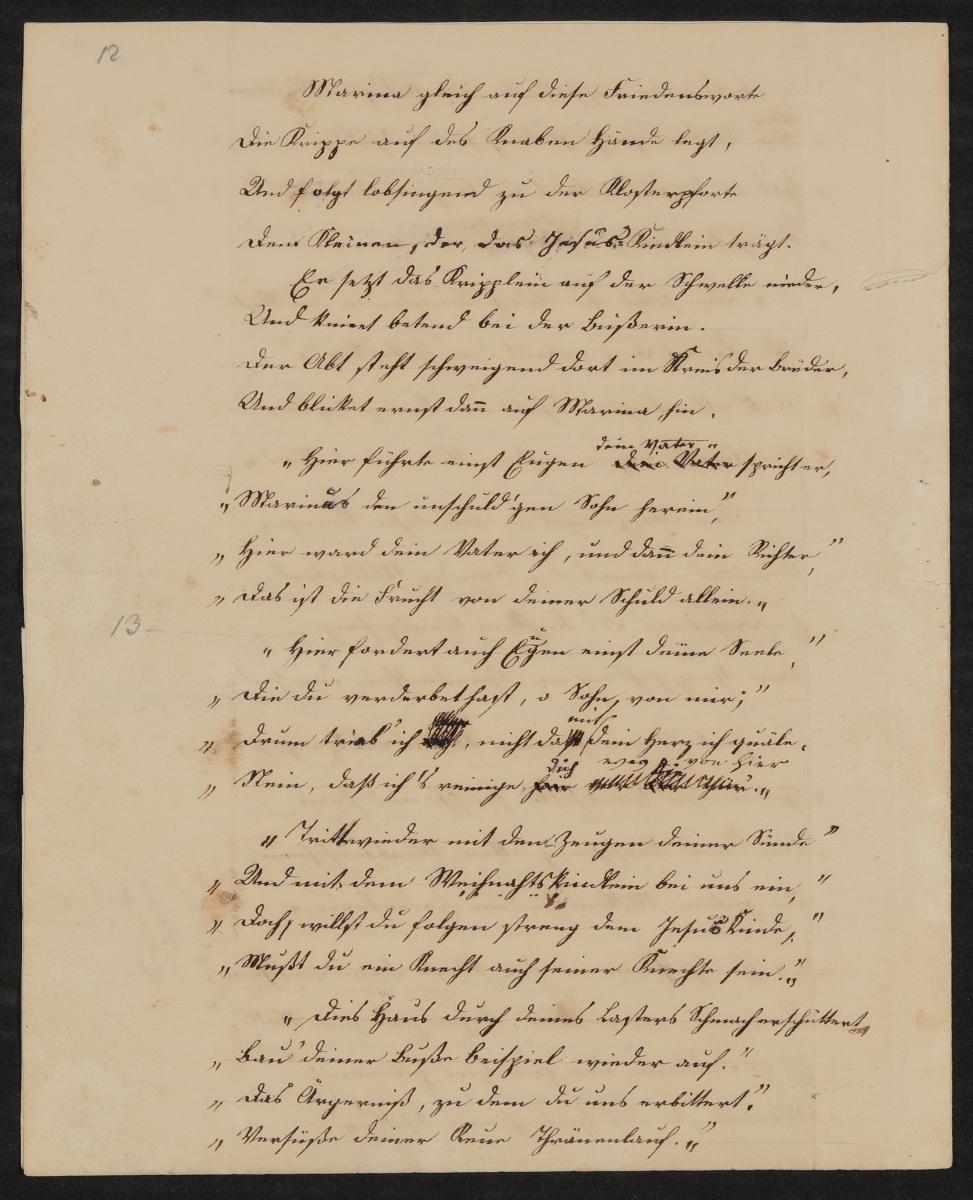 12
Marina gleich auf diese Friedensworte
Die Krippe auf des Knaben Hände legt,
Und folgt lobsingend zu der Klosterpforte
Dem Kleinen, der, das Jesus-Kindlein trägt.
Er setzt das Kripplein auf der Schwelle nieder,
Und kniet betend bei der Büßerin.
Der Abt steht schweigend dort im Kreis der Brüder,
Und blicket ernst dan̄ auf Marina hin.
dein Vater"
„Hier führte einst Eugen dein Vater spricht er,
„Marinus den unschuld'gen Sohn herein,"
„Hier ward dein Vater ich, und dan̄ dein Richter,"
„Das ist die Frucht von deiner Schuld allein.„
„Hier fordert auch Eugen einst deine Seele,"
„Die du verderbet hast, o Sohn, von mir;"
mit
„Drum trieb ich , nicht daß dein Herz ich quäle,
dich ewig von hier
„Nein, daß ich's reinige .„
„Tritt wieder mit den Zeugen deiner Sünde"
„Und mit dem Weihnachtskindlein bei uns ein,"
„Doch, willst du folgen streng dem Jesus Kinde,"
„Mußt du ein Knecht auch seiner Knechte sein."„
„Dies Haus durch deines Lasters Schmach erschüttert
„Bau' deiner Buße Beispiel wieder auf."
13
„Das Ärgerniß, zu dem du uns erbittert,"
„Versüße deiner Reue Thränenlauf."„